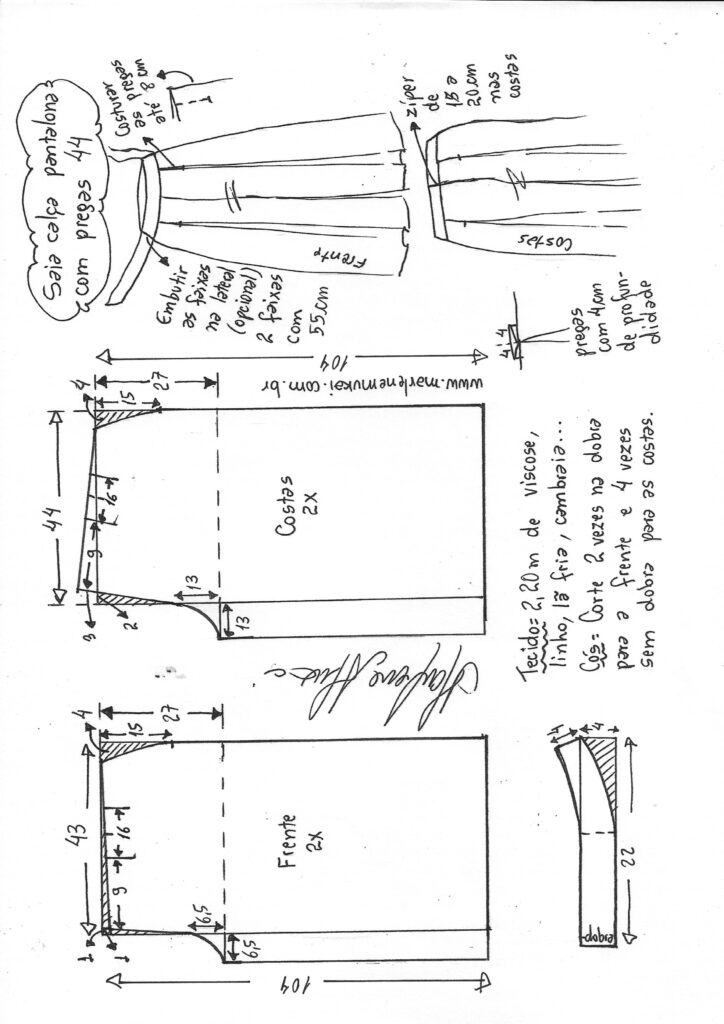 Saia calça pantalona:
com pregas 44
Costurar
as pregas
até 8 cm
Embutir
as faixas
na lateral
(opcional)
2 faixas
com
55cm
Frente
zíper
de
18 a
20cm
nas
costas
Costas
4 4
pregas
com 4cm
de profun-
didade
104
www.marlenemukai.com.br
44
4
15
27
9
16
3
2
13
13
Costas
2X
43
4
15
27
9
16
1
1
6,5
6,5
Frente
2X
104
Tecido= 2,20m de viscose,
linho, lã fria, cambraia...
Cós= Corte 2 vezes na dobra
para a frente e 4 vezes
sem dobra para as costas.
4
4
22
dobra